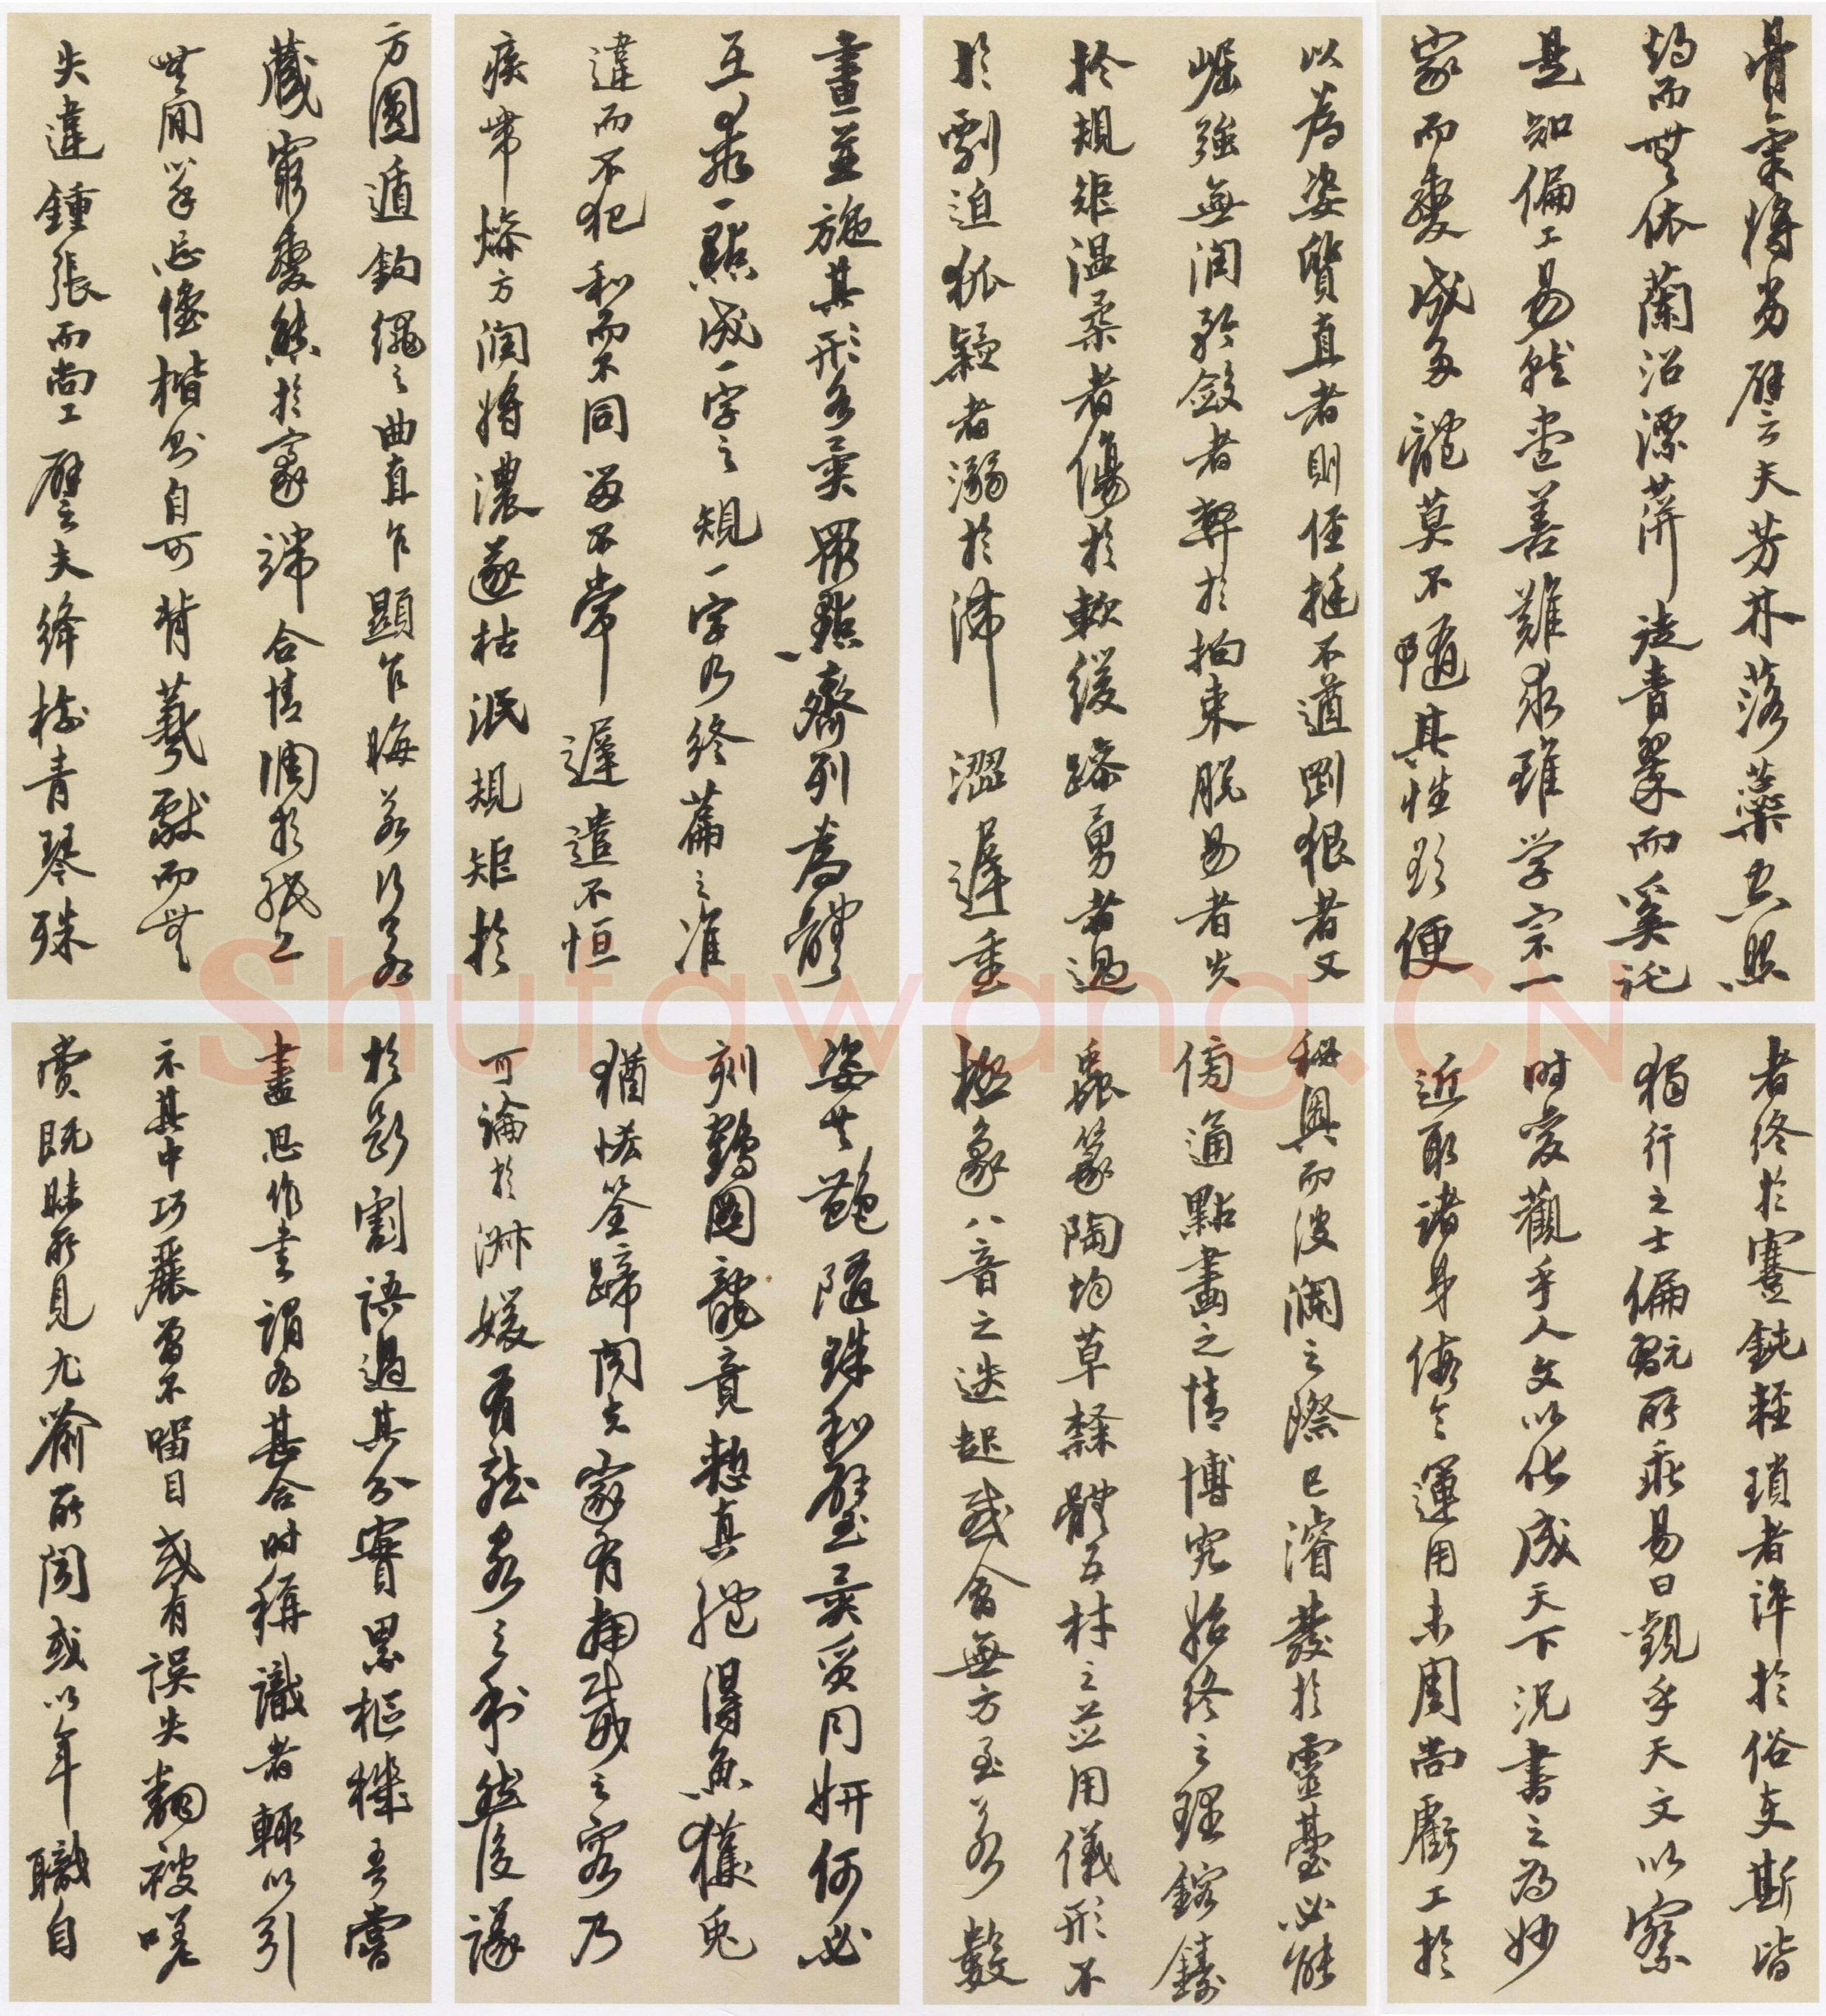 骨氣將劣譬夫芳林落蘂空照
灼而無依蘭沼漂蓱徒青翠而奚託
是知偏工易就盡善難求雖学宗一
家而變成多體莫不隨其性欲便
以為姿質直者則俓挺不遒剛佷者又
崛強無潤矜斂者弊於拘束脫易者失
於規矩温柔者傷於軟緩躁勇者過
於剽迫狐疑者溺於滯澀遲重
者終於蹇鈍輕瑣者淬於俗吏斯皆
獨行之士偏翫所乖易曰觀乎天文以察
時變觀乎人文以化成天下況書之為妙
近取諸身假令運用未周尚虧工於
秘奧而波瀾之際已濬發於靈臺必能
傍通點畫之情博究始終之理鎔鑄
蟲篆陶均草隸體五材之並用儀形不
極象八音之迭起感會無方至若數
畫並施其形各異眾點齊列為體
互乖一點成一字之規一字乃終篇之准
違而不犯和而不同留不常遲遣不恒
疾帶燥方潤將濃遂枯泯規矩於
方圓遁鉤繩之曲直乍顯乍晦若行若
藏窮變態於豪端合情調於紙上
無間心手忘懷楷則自可背羲獻而無
失違鍾張而尚工譬夫絳樹青琴殊
姿共艷隨珠和璧異質同妍何必
刻鶴圖龍竟慚真體得魚獲兔
猶恡筌蹄聞夫家有南威之容乃
可論於淑媛有龍泉之利然後議
於斷割語過其分實累樞機吾嘗
盡思作書謂為甚合時稱識者輒以引
示其中巧麗曾不留目或有誤失翻被嗟
賞既昧所見尤喻所聞或以年職自
Shufawang.CN